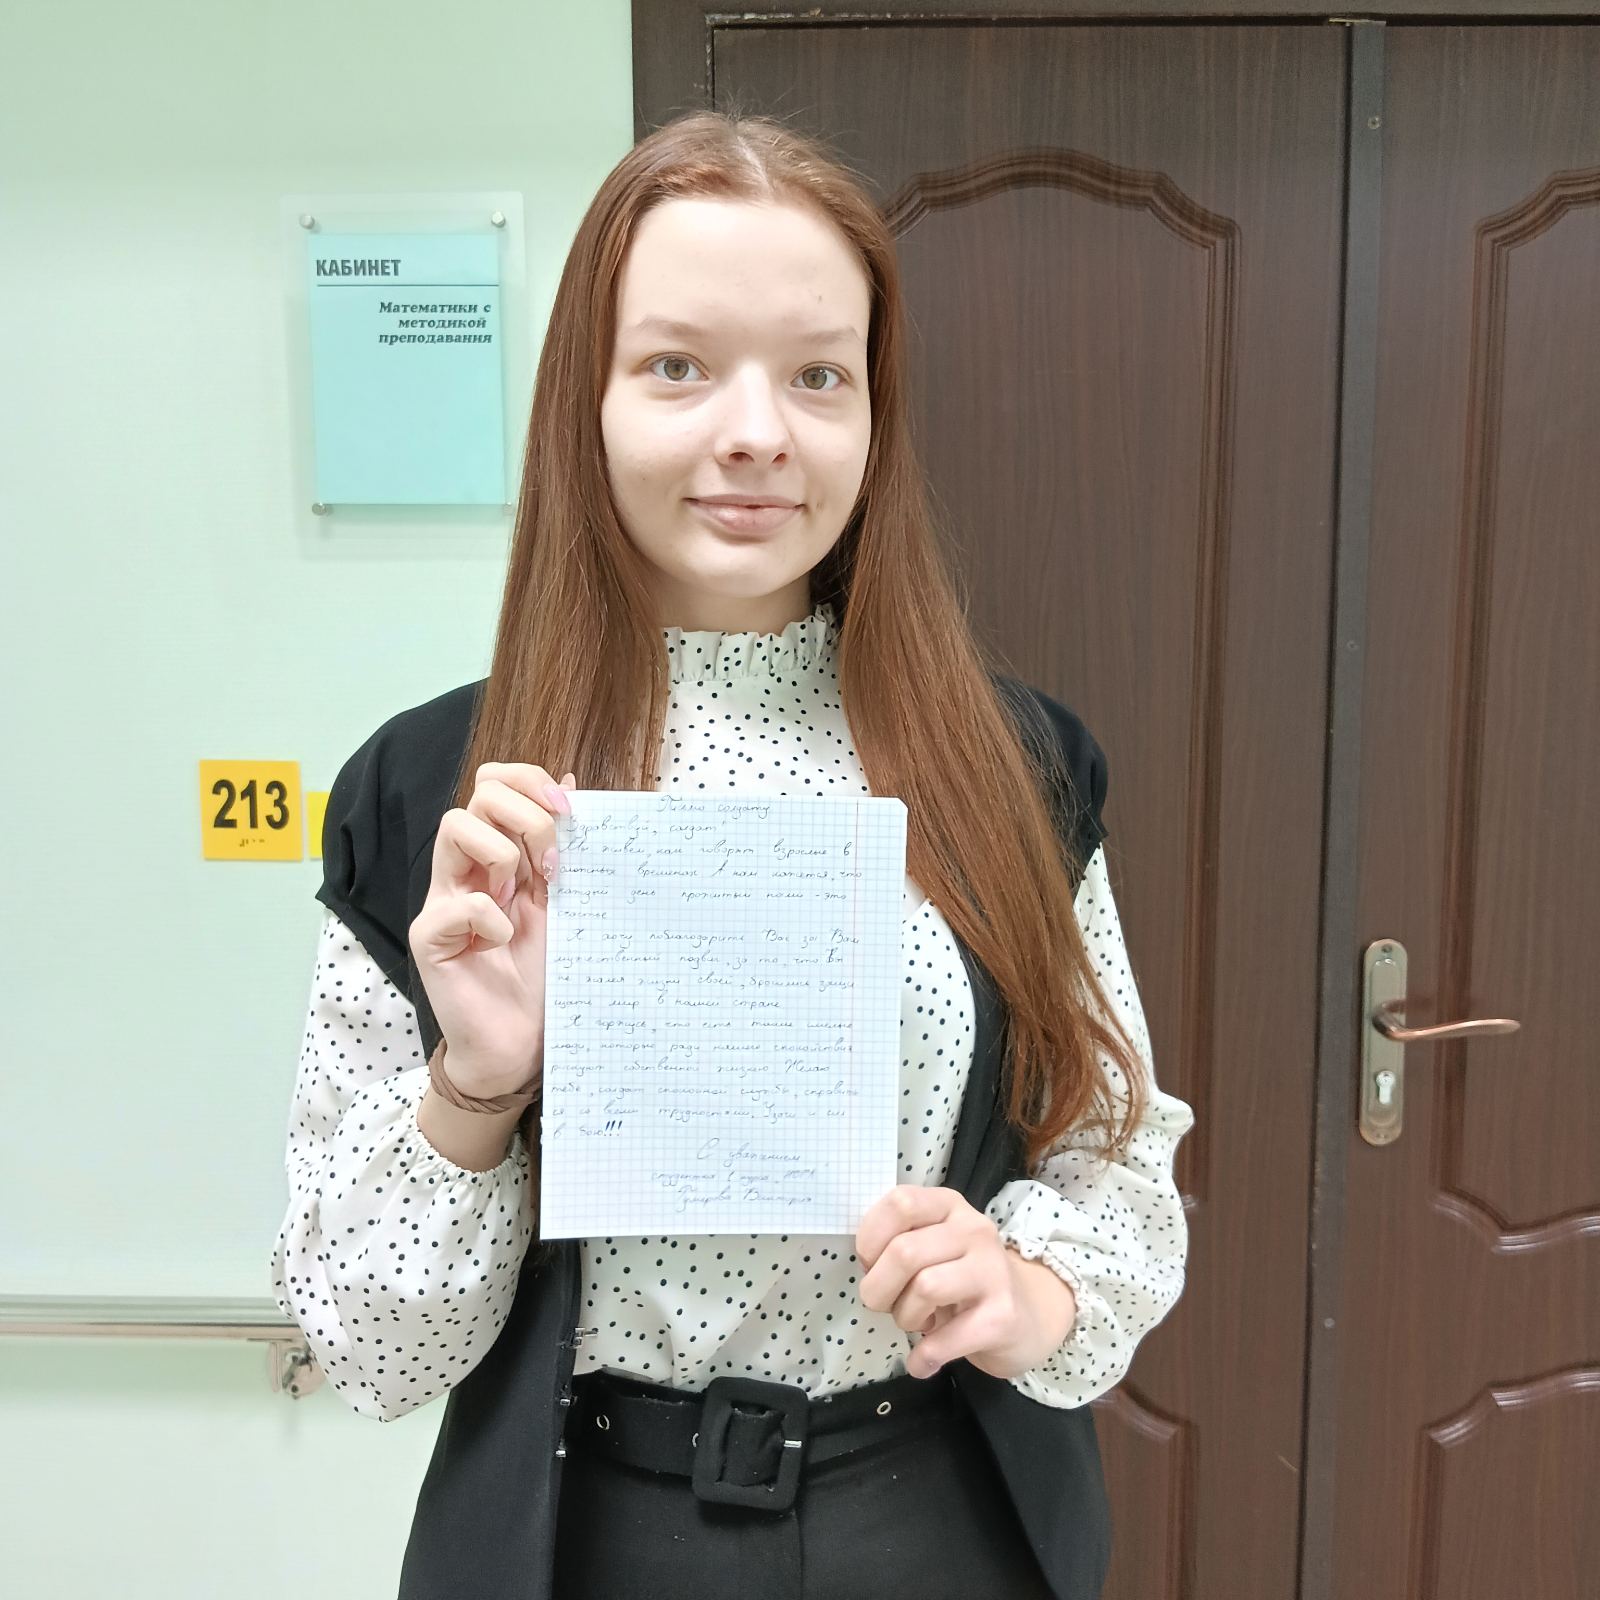 КАБИНЕТ
Математики с
методикой
преподавания
213
Письмо солдату
Здравствуй, солдат!
Мы живём, как говорят взрослые в
сложных временах. А нам кажется, что
каждый день прожитый нами - это
счастье
Я хочу поблагодарить Вас за Ваш
мужественный подвиг, за то, что Вы
не жалея жизни своей, бросились защи
щать мир в нашей стране
Я горжусь, что есть такие смелые
люди, которые ради нашего спокойствия
рискуют собственной жизнью Желаю
тебе, солдат спокойной службы, справить
ся со всеми трудностями, Удачи и сил
в бою!!!
С уважением
студентка 1 курса
Виктория